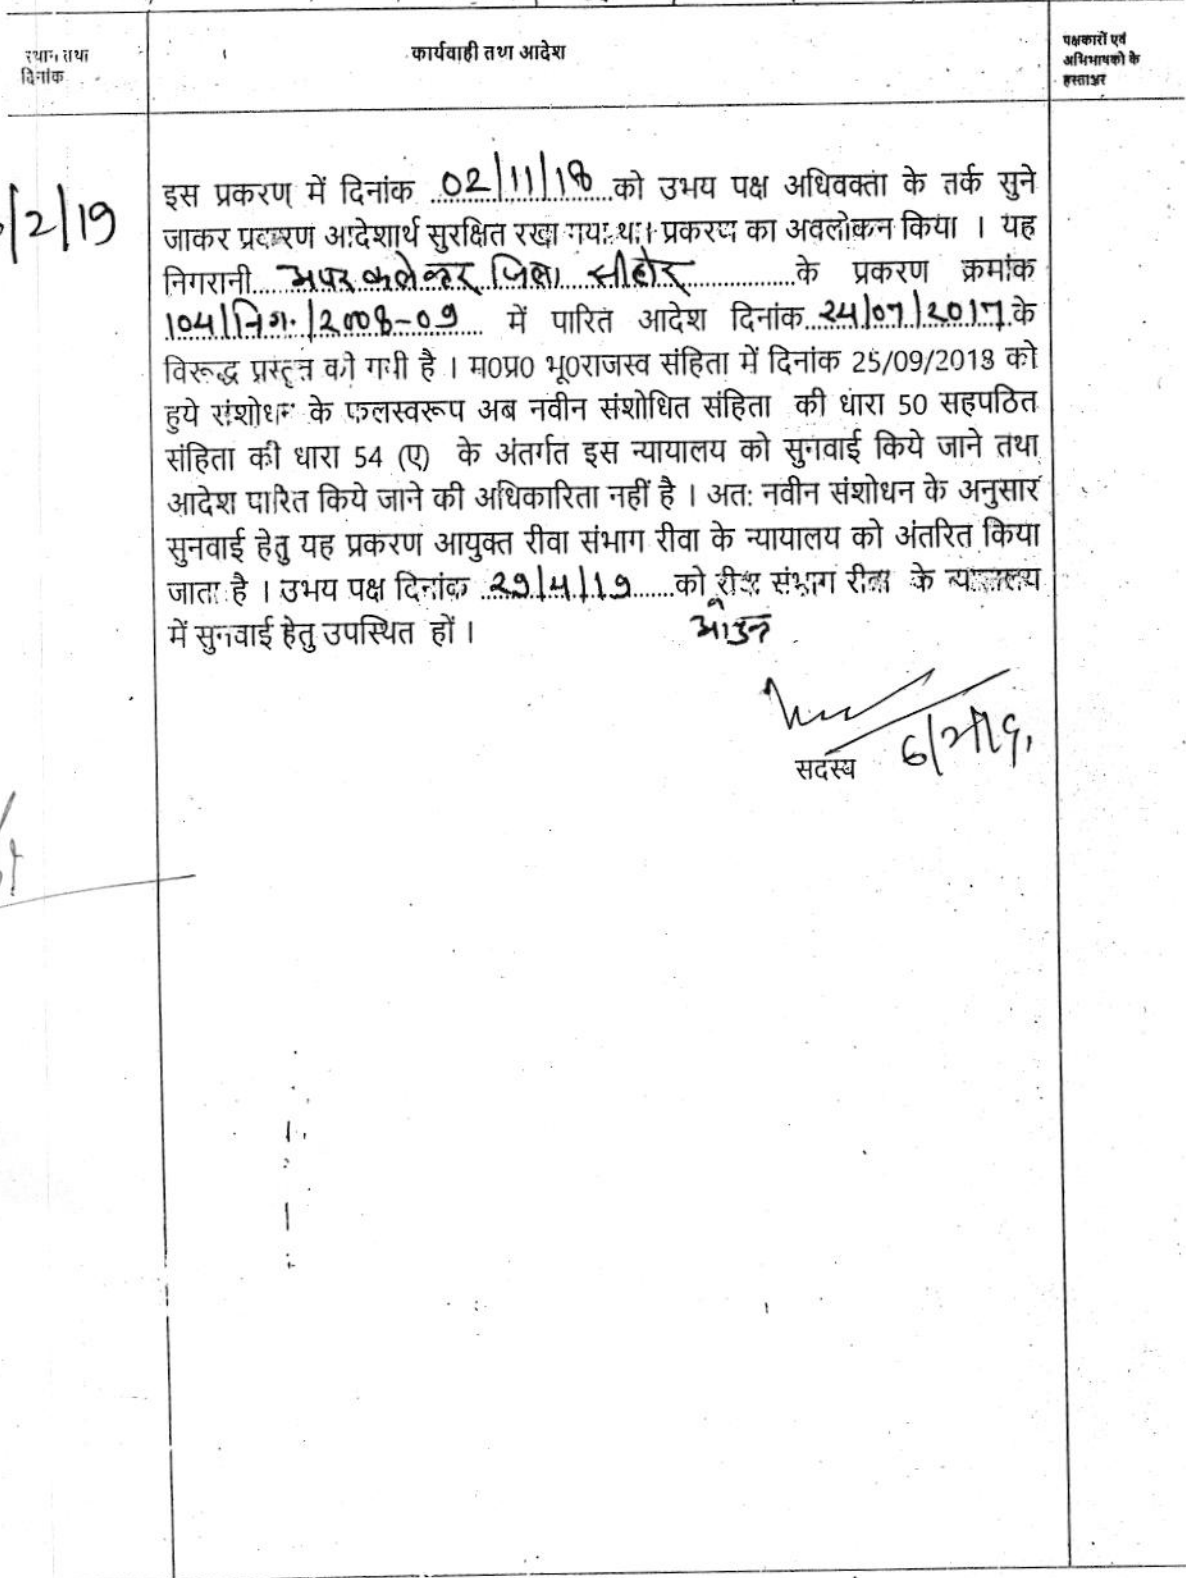 स्थान तथा
दिनांक
कार्यवाही तथा आदेश
पक्षकारों एवं
अभिभाषको के
हस्ताक्षर
/2/19
इस प्रकरण में दिनांक ..02/11/18..को उभय पक्ष अधिवक्ता के तर्क सुने
जाकर प्रकरण आदेशार्थ सुरक्षित रखा गया था। प्रकरण का अवलोकन किया । यह
निगरानी....अपर कलेक्टर जिला सीहोर............के प्रकरण क्रमांक
104/निग./2008-09 में पारित आदेश दिनांक..24/07/2017.के
विरूद्ध प्रस्तुत की गयी है । म0प्र0 भू0राजस्व संहिता में दिनांक 25/09/2018 को
हुये संशोधन के फलस्वरूप अब नवीन संशोधित संहिता की धारा 50 सहपठित
संहिता की धारा 54 (ए) के अंतर्गत इस न्यायालय को सुनवाई किये जाने तथा
आदेश पारित किये जाने की अधिकारिता नहीं है । अतः नवीन संशोधन के अनुसार
सुनवाई हेतु यह प्रकरण आयुक्त रीवा संभाग रीवा के न्यायालय को अंतरित किया
जाता है । उभय पक्ष दिनांक ..29/4/19......को रीवा संभाग रीवा के न्यायालय
में सुनवाई हेतु उपस्थित हों ।
सदस्य